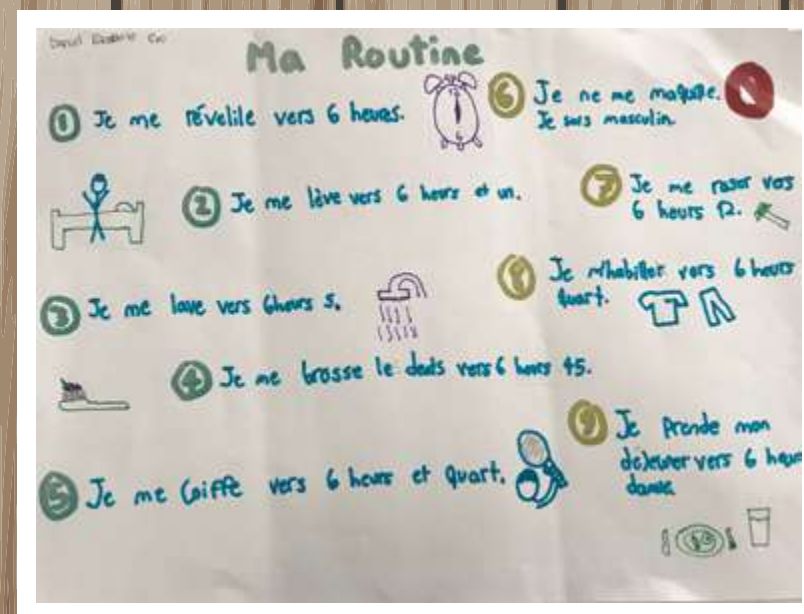 Ma Routine
① Je me révelile vers 6 heures.
② Je me lève vers 6 hours et un.
③ Je me lave vers 6hours 5.
④ Je me brosse le dents vers 6 hours 45.
⑤ Je me Coiffe vers 6 hours et quart.
⑥ Je ne me
Je suis masculin.
⑦ Je me raser vers
6 hours 12.
⑧ Je m'habiller vers 6 hours
quart.
⑨ Je Prende mon
dejeuner vers 6 hours